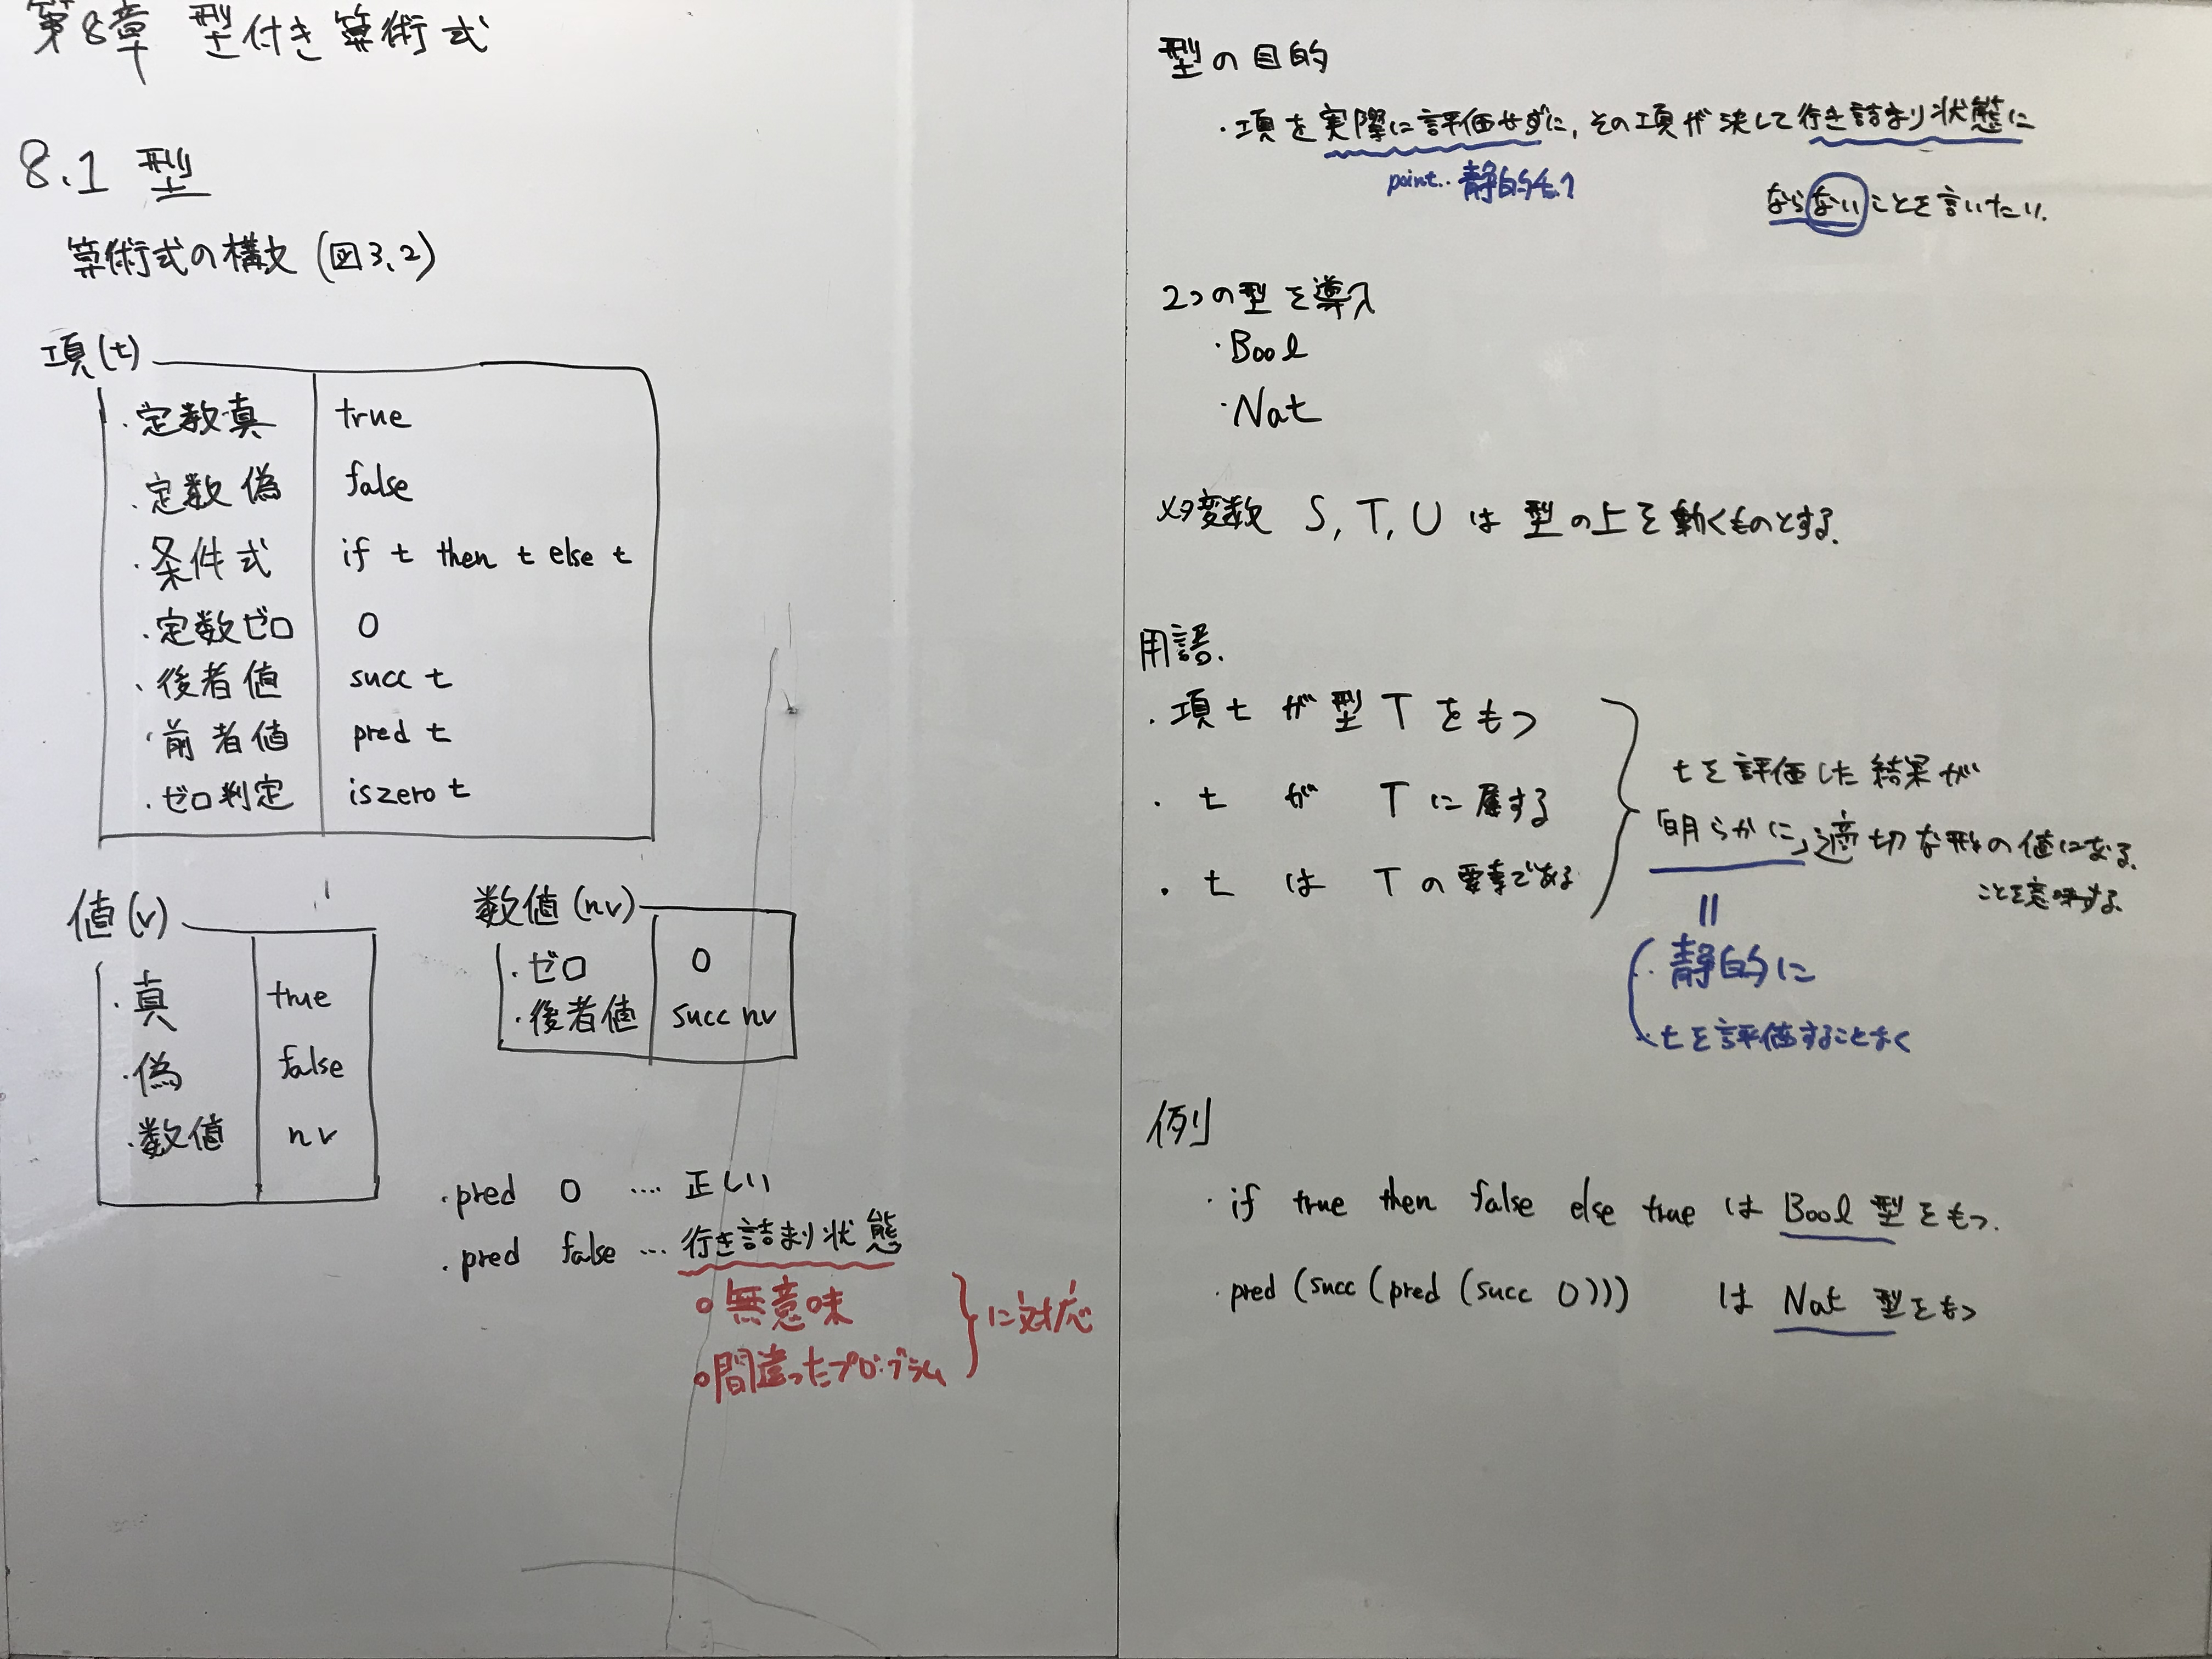 第8章 型付き算術式
8.1 型
算術式の構文 (図3.2)
項(t)
・定数真 true
・定数偽 false
・条件式 if t then t else t
・定数ゼロ 0
・後者値 succ t
・前者値 pred t
・ゼロ判定 iszero t
値(v)
・真 true
・偽 false
・数値 nv
数値(nv)
・ゼロ 0
・後者値 succ nv
・pred 0 …. 正しい
・pred false … 行き詰まり状態
○無意味
○間違ったプログラム
に対応
型の目的
・項を実際に評価せずに, その項が決して行き詰まり状態に
point.. 静的
ならないことを言いたい.
2つの型を導入
・Bool
・Nat
メタ変数 S, T, U は 型の上を動くものとする.
用語.
・項 t が 型 T をもつ
・ t が T に属する
・ t は T の要素である
tを評価した結果が
「明らかに」適切な形の値になる.
ことを意味する.
||
・静的に
・tを評価することなく
例
・if true then false else true は Bool 型をもつ.
・pred (succ (pred (succ 0))) は Nat 型をもつ